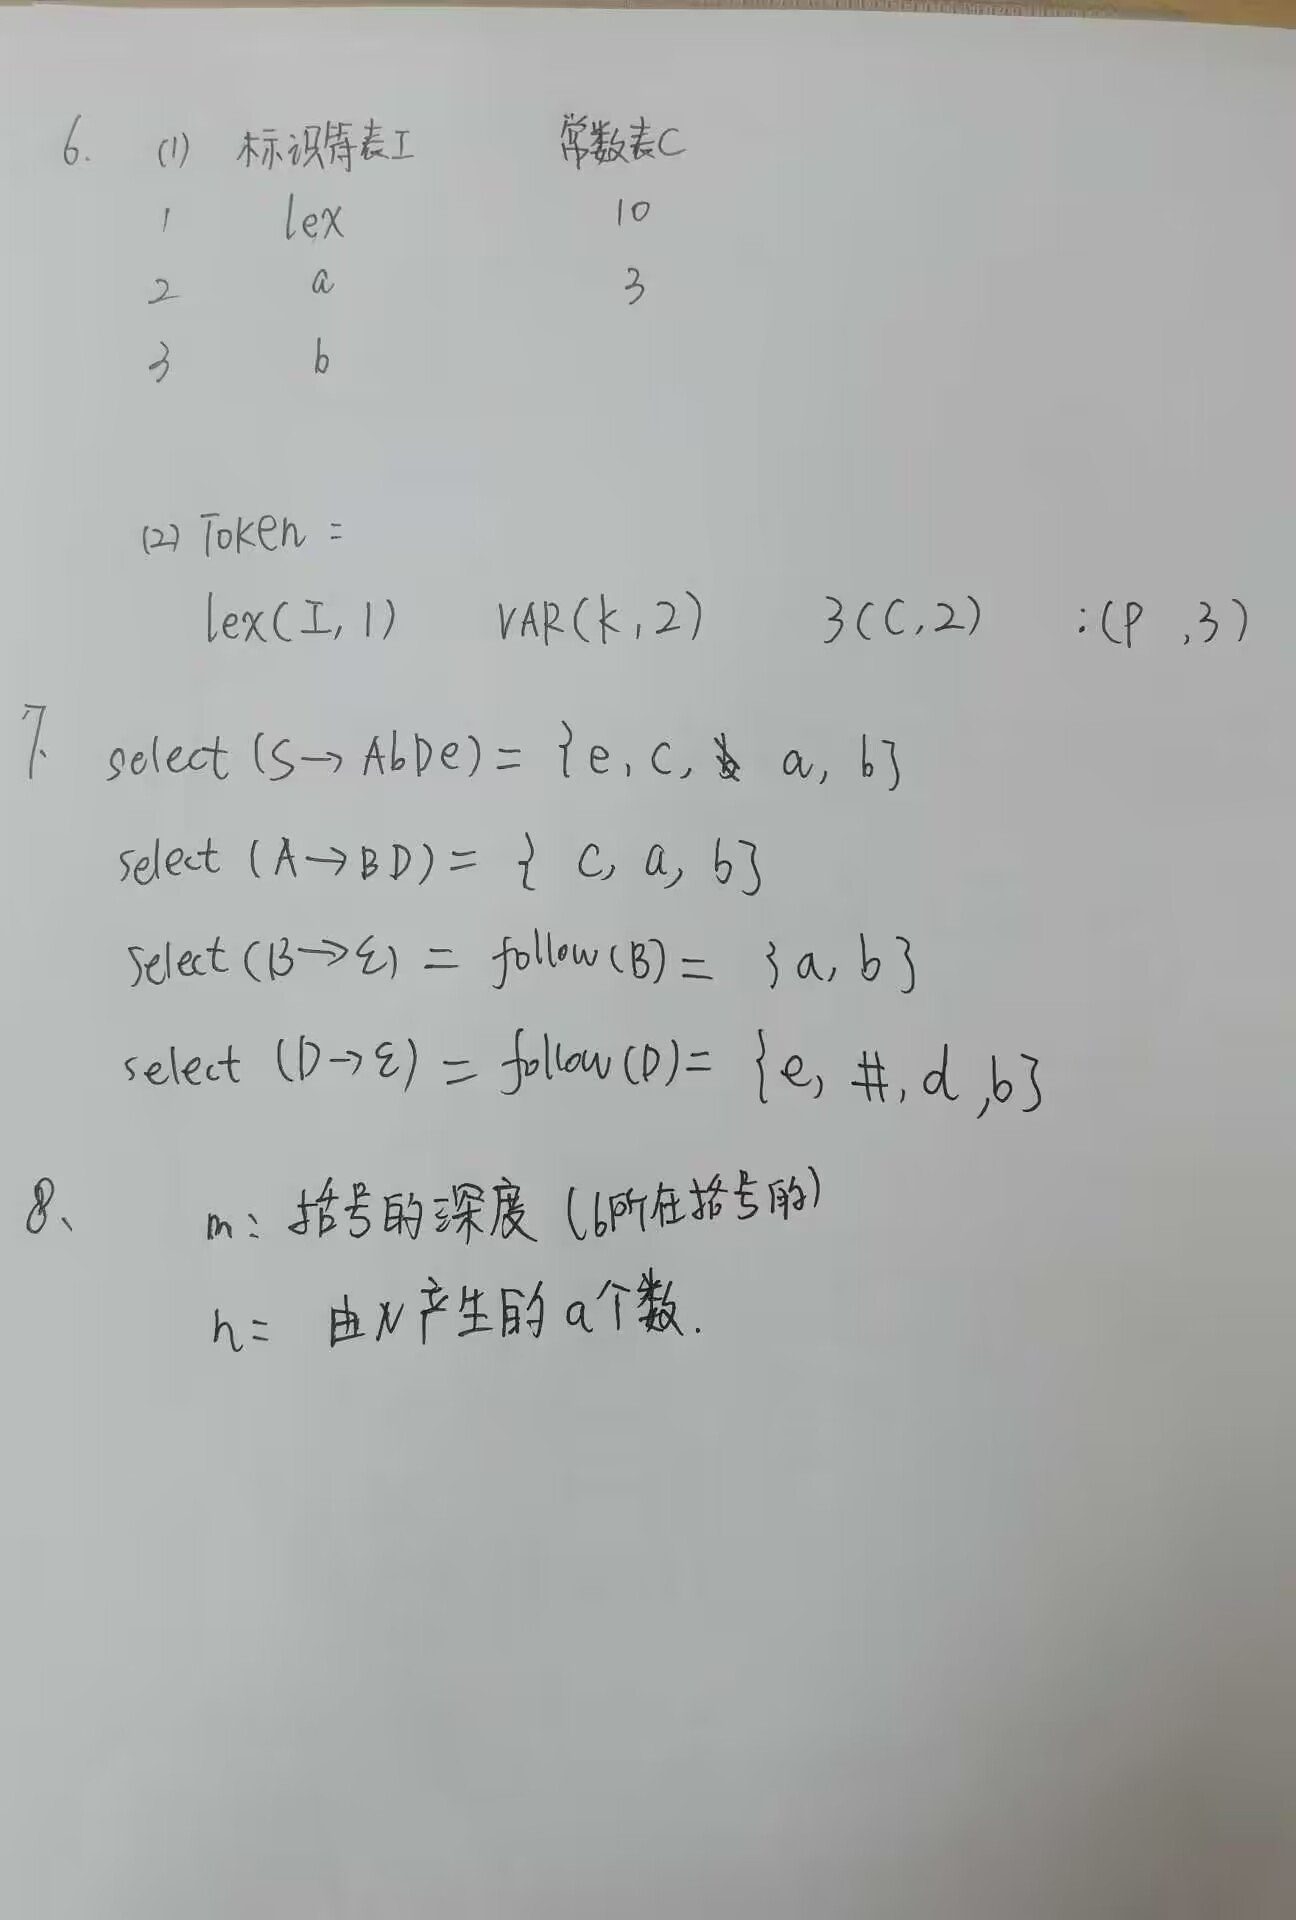 6. (1) 标识符表I 常数表C
1 lex 10
2 a 3
3 b
(2) Token =
lex(I,1) VAR(k,2) 3(C,2) :(P ,3)
7. select (S→AbDe) = {e, c, a, b}
select (A→BD) = { c, a, b}
select (B→ε) = follow(B) = {a, b}
select (D→ε) = follow(D) = {e, #, d, b}
8、 m: 括号的深度 (b所在括号的)
n= 由N产生的a个数.